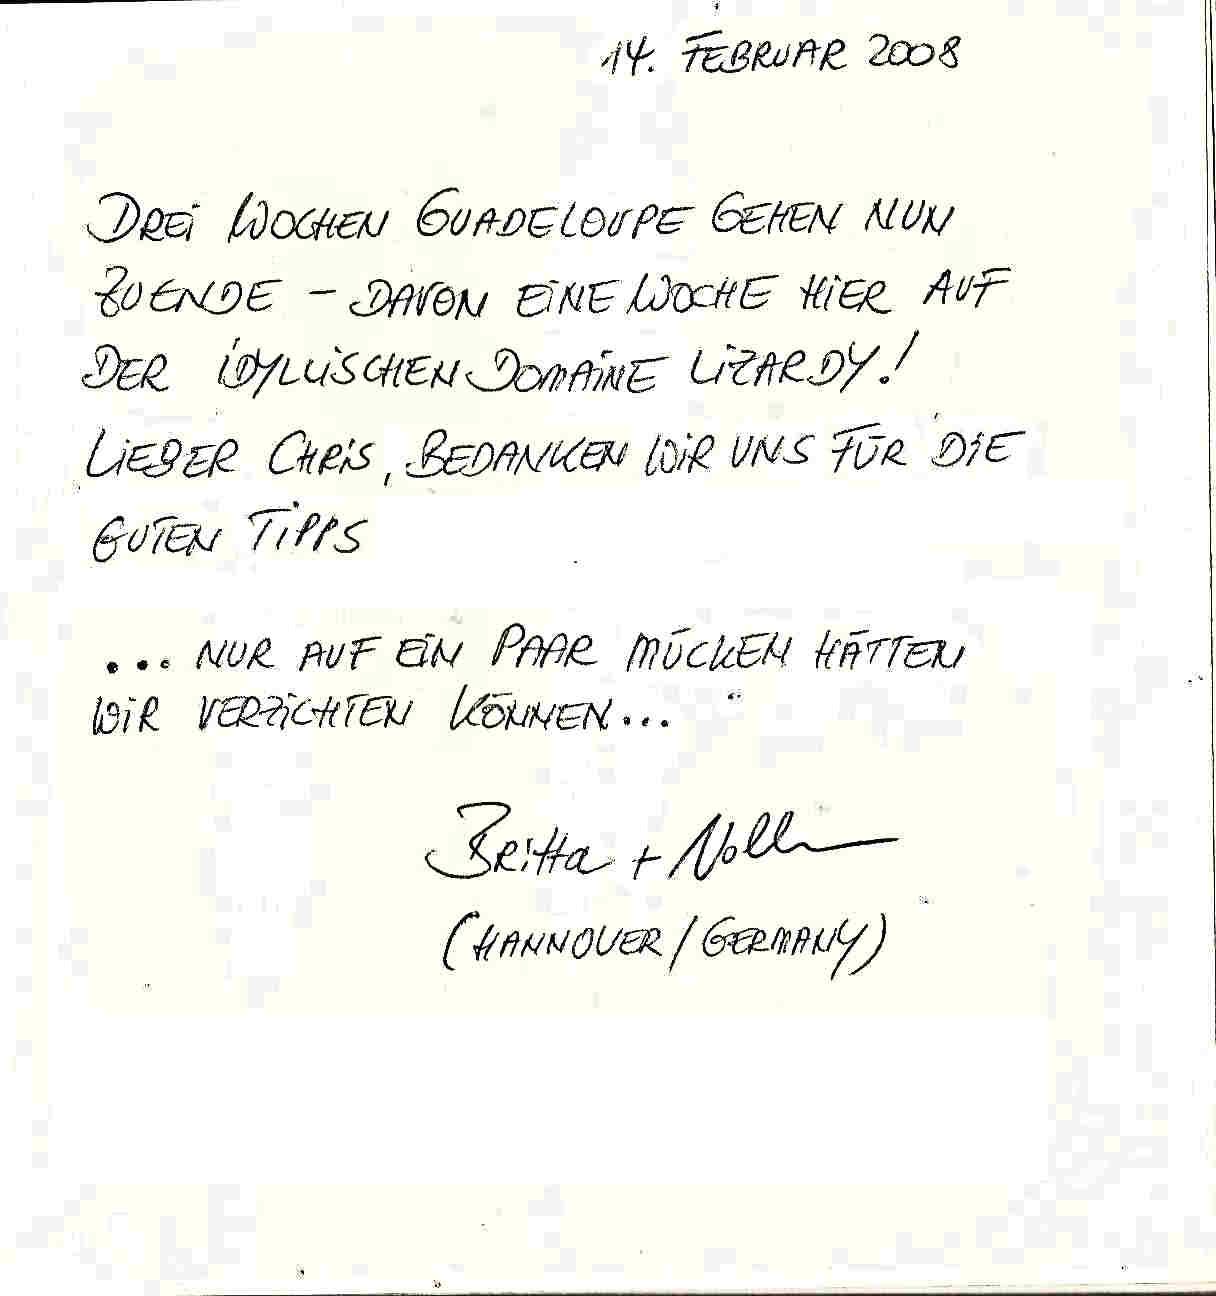 14. FEBRUAR 2008
DREI WOCHEN GUADELOUPE GEHEN NUN
ZUENDE - DAVON EINE WOCHE HIER AUF
DER IDYLLISCHEN DOMAINE LIZARDY!
LIEBER CHRIS, BEDANKEN WIR UNS FÜR DIE
GUTEN TIPPS
... NUR AUF EIN PAAR MÜCKEN HÄTTEN
WIR VERZICHTEN KÖNNEN...
Britta +
(HANNOVER/GERMANY)